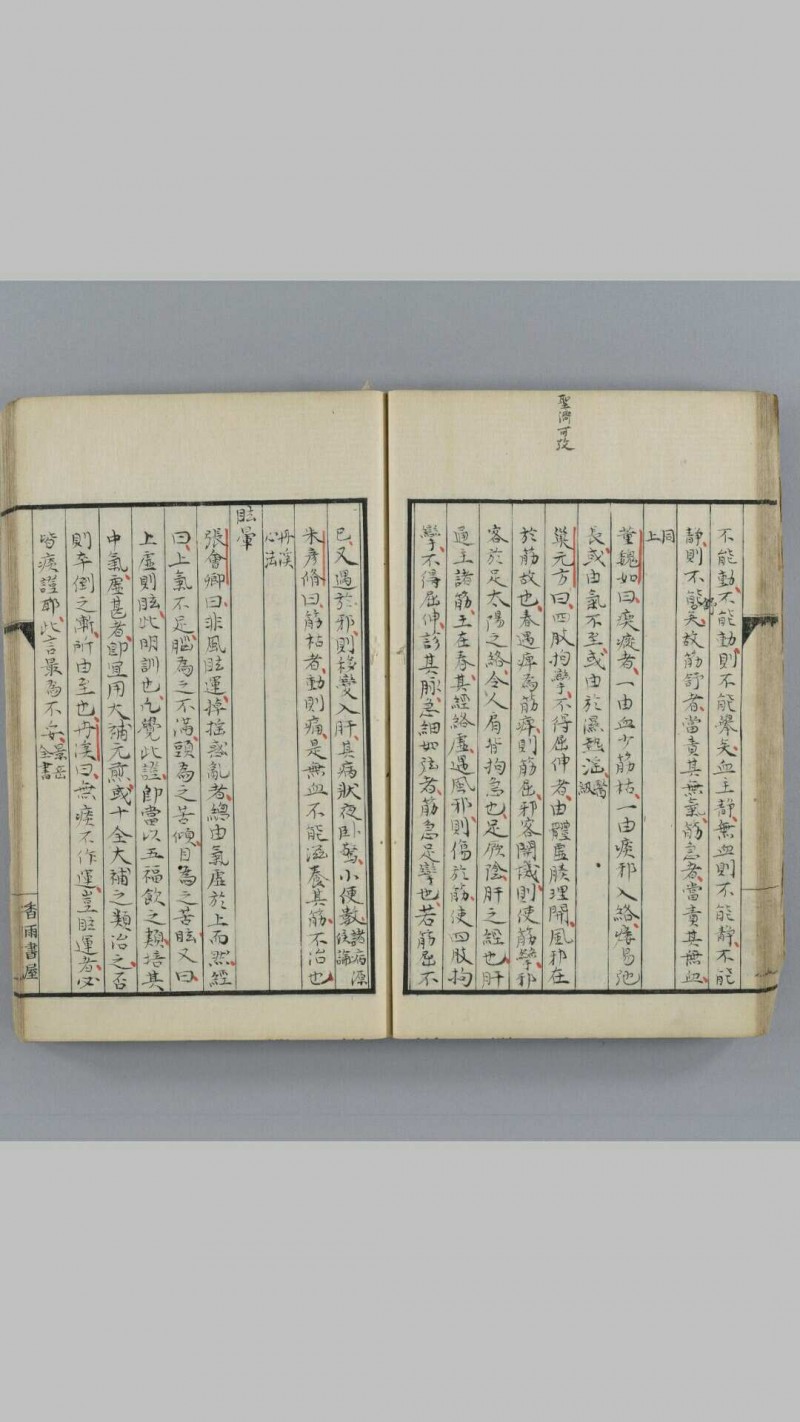 聖濟可攷
不能動、不能動則不能舉矣、血主靜、無血則不能靜、不能
靜、則不能矣、故筋舒者、當責其無氣、筋急者、當責其無血、
同上
董魏如曰、瘈瘲者、一由血少筋枯、一由痰邪入絡、
長、或由氣不至、或由於濕熱淫、醫級
巢元方曰、四肢拘攣、不得屈伸者、由體虛腠理開、風邪在
於筋故也、春遇痺為筋痺、則筋屈、邪客關機、則使筋攣、邪
客於足太陽之絡、令人肩背拘急也、足厥陰肝之經也、肝
通主諸筋、王在春、其經絡虛、遇風邪、則傷於筋、使四肢拘
攣、不得屈伸、診其脈、急細如弦者、筋急足攣也、若筋屈不
已、又遇於邪、則移變入肝、其病狀夜臥驚、小便數、諸病源候論
朱彥脩曰、筋枯者、動則痛、是無血不能滋養其筋、不治也、
丹溪心法
眩暈
張會卿曰、非風眩運、掉搖惑亂者、總由氣虛於上而然、經
曰、上氣不足、腦為之不滿、頭為之苦傾、目為之苦眩、又曰、
上虛則眩、此明訓也、凡覺此證、即當以五福飲之類、培其
中氣、虛甚者、即宜用大補元煎、或十全大補之類治之、否
則卒倒之漸、所由至也、丹溪曰、無痰不作運、豈眩運者、必
皆痰證耶、此言最為不妥、景岳全書
香雨書屋